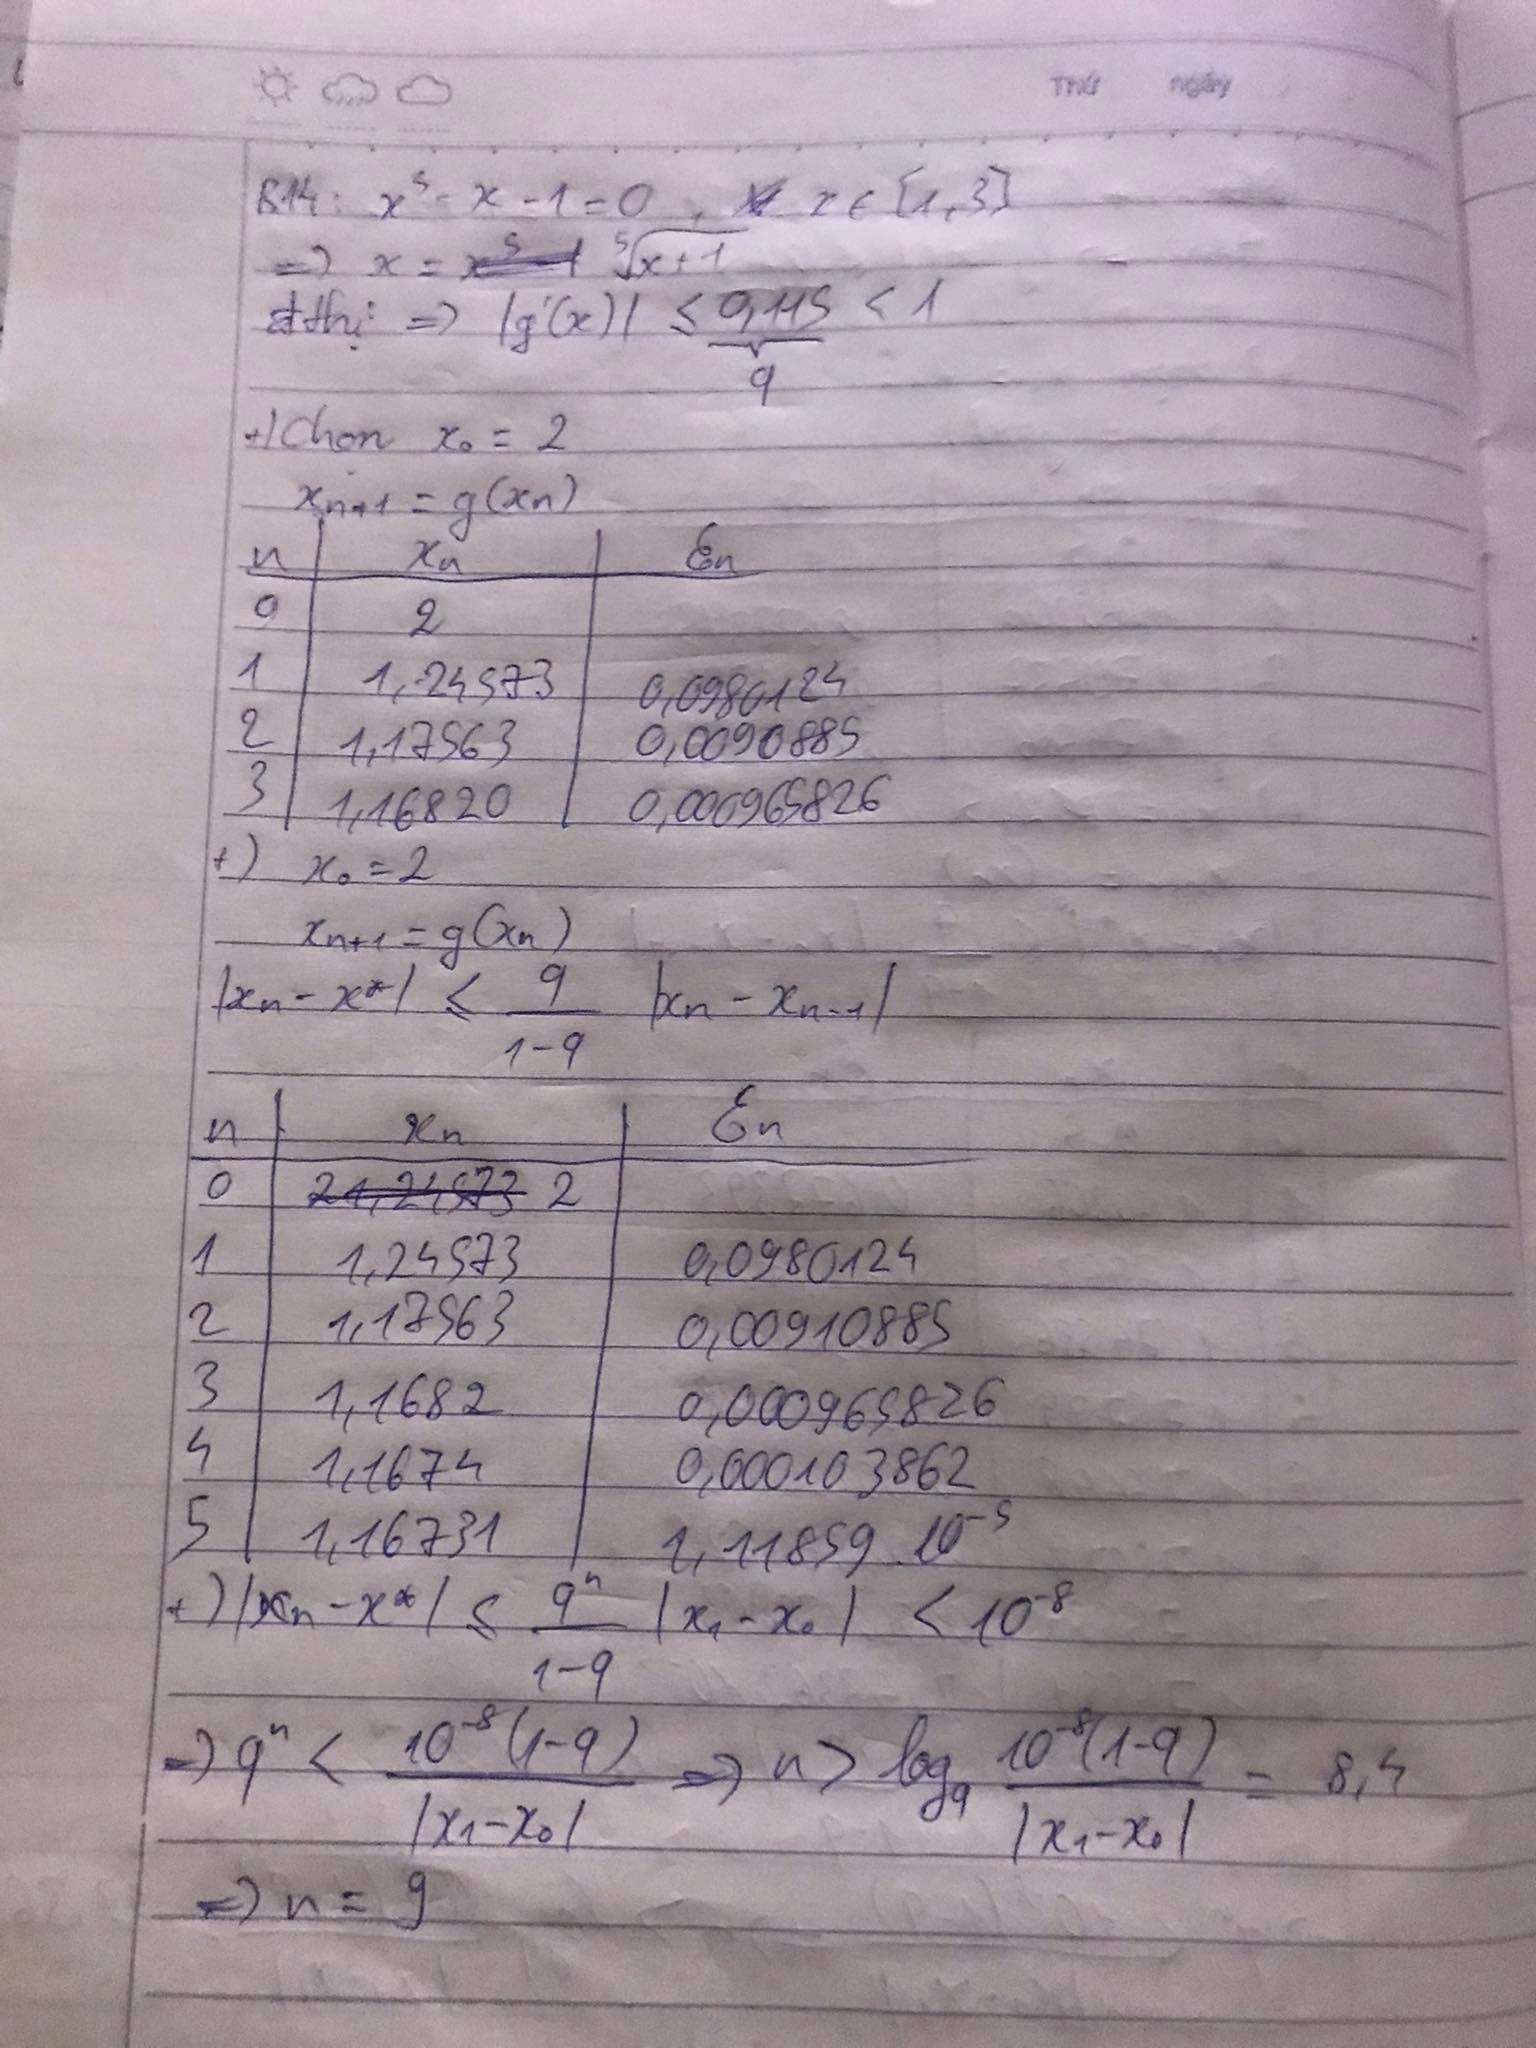 Thứ ngày
B.14: x⁵ - x - 1 = 0, x ∈ [1, 3]
=> x = ⁵√x+1
đthị => |g'(x)| ≤ 0,115 < 1
q
+) Chọn x₀ = 2
xₙ₊₁ = g(xₙ)
n | xₙ | Ɛₙ
0 | 2
1 | 1,24573 | 0,0980124
2 | 1,17563 | 0,0090885
3 | 1,16820 | 0,000965826
+) x₀ = 2
xₙ₊₁ = g(xₙ)
|xₙ - x*| ≤ q/(1-q) |xₙ - xₙ₋₁|
n | xₙ | Ɛₙ
0 | 2
1 | 1,24573 | 0,0980124
2 | 1,17563 | 0,00910885
3 | 1,1682 | 0,000965826
4 | 1,1674 | 0,000103862
5 | 1,16731 | 1,11859.10⁻⁵
+) |xₙ - x*| ≤ qⁿ/(1-q) |x₁ - x₀| < 10⁻⁸
=> qⁿ < 10⁻⁸(1-q)/|x₁-x₀| => n > log_q 10⁻⁸(1-q)/|x₁-x₀| = 8,4
=> n = 9